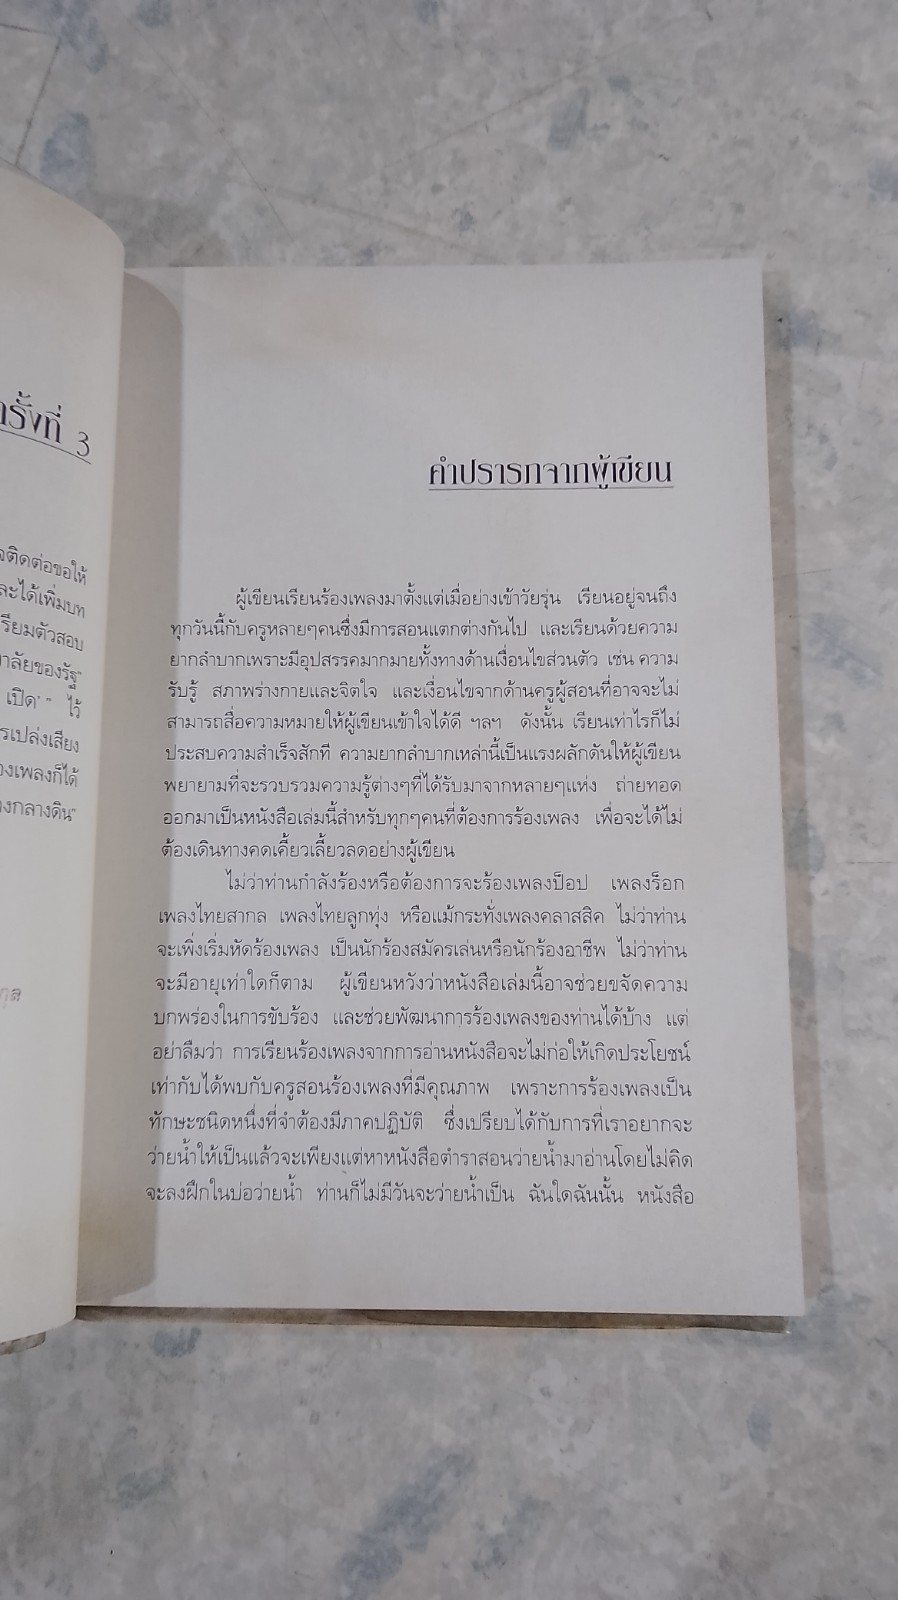 รั้งที่ 3
ติดต่อขอให้
ละได้เพิ่มบท
รียมตัวสอบ
าลัยของรัฐ"
เปิด' " ไว้
รเปล่งเสียง
องเพลงก็ได้
งกลางดิน"
กุล
คำปรารภจากผู้เขียน
ผู้เขียนเรียนร้องเพลงมาตั้งแต่เมื่อย่างเข้าวัยรุ่น เรียนอยู่จนถึง
ทุกวันนี้กับครูหลายๆคนซึ่งมีการสอนแตกต่างกันไป และเรียนด้วยความ
ยากลำบากเพราะมีอุปสรรคมากมายทั้งทางด้านเงื่อนไขส่วนตัว เช่น ความ
รับรู้ สภาพร่างกายและจิตใจ และเงื่อนไขจากด้านครูผู้สอนที่อาจจะไม่
สามารถสื่อความหมายให้ผู้เขียนเข้าใจได้ดี ฯลฯ ดังนั้น เรียนเท่าไรก็ไม่
ประสบความสำเร็จสักที ความยากลำบากเหล่านี้เป็นแรงผลักดันให้ผู้เขียน
พยายามที่จะรวบรวมความรู้ต่างๆที่ได้รับมาจากหลายๆแห่ง ถ่ายทอด
ออกมาเป็นหนังสือเล่มนี้สำหรับทุกๆคนที่ต้องการร้องเพลง เพื่อจะได้ไม่
ต้องเดินทางคดเคี้ยวเลี้ยวลดอย่างผู้เขียน
ไม่ว่าท่านกำลังร้องหรือต้องการจะร้องเพลงป็อป เพลงร็อก
เพลงไทยสากล เพลงไทยลูกทุ่ง หรือแม้กระทั่งเพลงคลาสสิค ไม่ว่าท่าน
จะเพิ่งเริ่มหัดร้องเพลง เป็นนักร้องสมัครเล่นหรือนักร้องอาชีพ ไม่ว่าท่าน
จะมีอายุเท่าใดก็ตาม ผู้เขียนหวังว่าหนังสือเล่มนี้อาจช่วยขจัดความ
บกพร่องในการขับร้อง และช่วยพัฒนาการร้องเพลงของท่านได้บ้าง แต่
อย่าลืมว่า การเรียนร้องเพลงจากการอ่านหนังสือจะไม่ก่อให้เกิดประโยชน์
เท่ากับได้พบกับครูสอนร้องเพลงที่มีคุณภาพ เพราะการร้องเพลงเป็น
ทักษะชนิดหนึ่งที่จำต้องมีภาคปฏิบัติ ซึ่งเปรียบได้กับการที่เราอยากจะ
ว่ายน้ำให้เป็นแล้วจะเพียงแต่หาหนังสือตำราสอนว่ายน้ำมาอ่านโดยไม่คิด
จะลงฝึกในบ่อว่ายน้ำ ท่านก็ไม่มีวันจะว่ายน้ำเป็น ฉันใดฉันนั้น หนังสือ